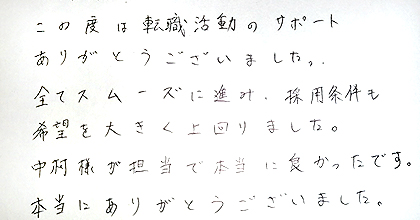 この度は転職活動のサポート
ありがとうございました。
全てスムーズに進み、採用条件も
希望を大きく上回りました。
中村様が担当で本当に良かったです。
本当にありがとうございました。